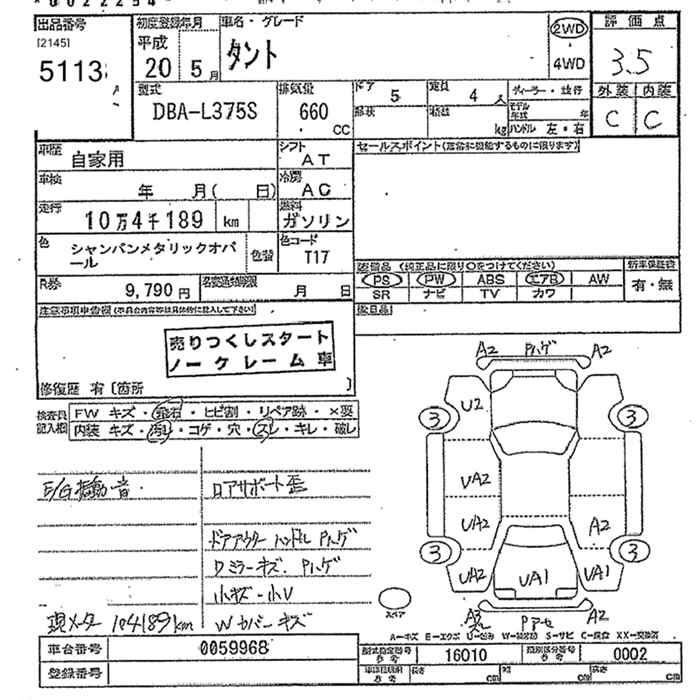 出品番号
[2145]
5113
初度登録年月
平成
20 5月
車名・グレード
タント
2WD
・
4WD
評価点
3.5
外装 内装
C C
型式
DBA-L375S
排気量
660
CC
ドア
5
定員
4 人
形状
積載
kg
ディーラー・並行
モデル
年式 年
ハンドル 左・右
車歴
自家用
シフト
AT
車検
年 月( 日)
冷房
AC
走行
10万4千189 km
燃料
ガソリン
色
シャンパンメタリックオパ
ール
色替
色コード
T17
R券
9,790円
名変通知期限
月 日
セールスポイント(正常に機能するものに限ります)
装備品 (純正品に限り○をつけてください)
PS PW ABS エアB AW
SR ナビ TV カワ
新車保証書
有・無
後日品
注意事項申告欄
売りつくしスタート
ノークレーム車
修復歴 有 [箇所 ]
検査員
記入欄
FW キズ・飛石・ヒビ割・リペア跡・×要
内装 キズ・汚れ・コゲ・穴・スレ・キレ・破レ
E/G振動 音
ロアサポート歪
ドアアウターハンドル Pハゲ
ミラーキズ、Pハゲ
小キズ・小U
Wカバーキズ
現メーター 104189km
A2 Pハゲ A2
U2
3 3
UA2
UA2 A2
3 3
UA2 UA1 UA1
スペア
A2 Pアセ A2
A=キズ E=エクボ U=凹み W=補修跡 S=サビ C=腐食 XX=交換済
車台番号
0059968
登録番号
型式指定番号
16010
類別区分番号
0002
長さ cm
幅 cm
高さ cm